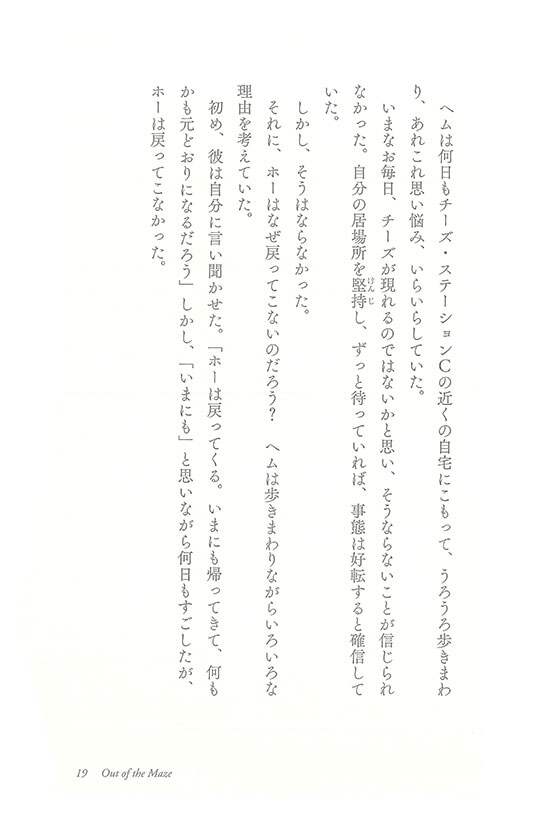 ヘムは何日もチーズ・ステーションCの近くの自宅にこもって、うろうろ歩きまわ
り、あれこれ思い悩み、いらいらしていた。
いまなお毎日、チーズが現れるのではないかと思い、そうならないことが信じられ
なかった。自分の居場所を堅持し、ずっと待っていれば、事態は好転すると確信して
けんじ
いた。
しかし、そうはならなかった。
それに、ホーはなぜ戻ってこないのだろう？　ヘムは歩きまわりながらいろいろな
理由を考えていた。
初め、彼は自分に言い聞かせた。「ホーは戻ってくる。いまにも帰ってきて、何も
かも元どおりになるだろう」しかし、「いまにも」と思いながら何日もすごしたが、
ホーは戻ってこなかった。
19 Out of the Maze